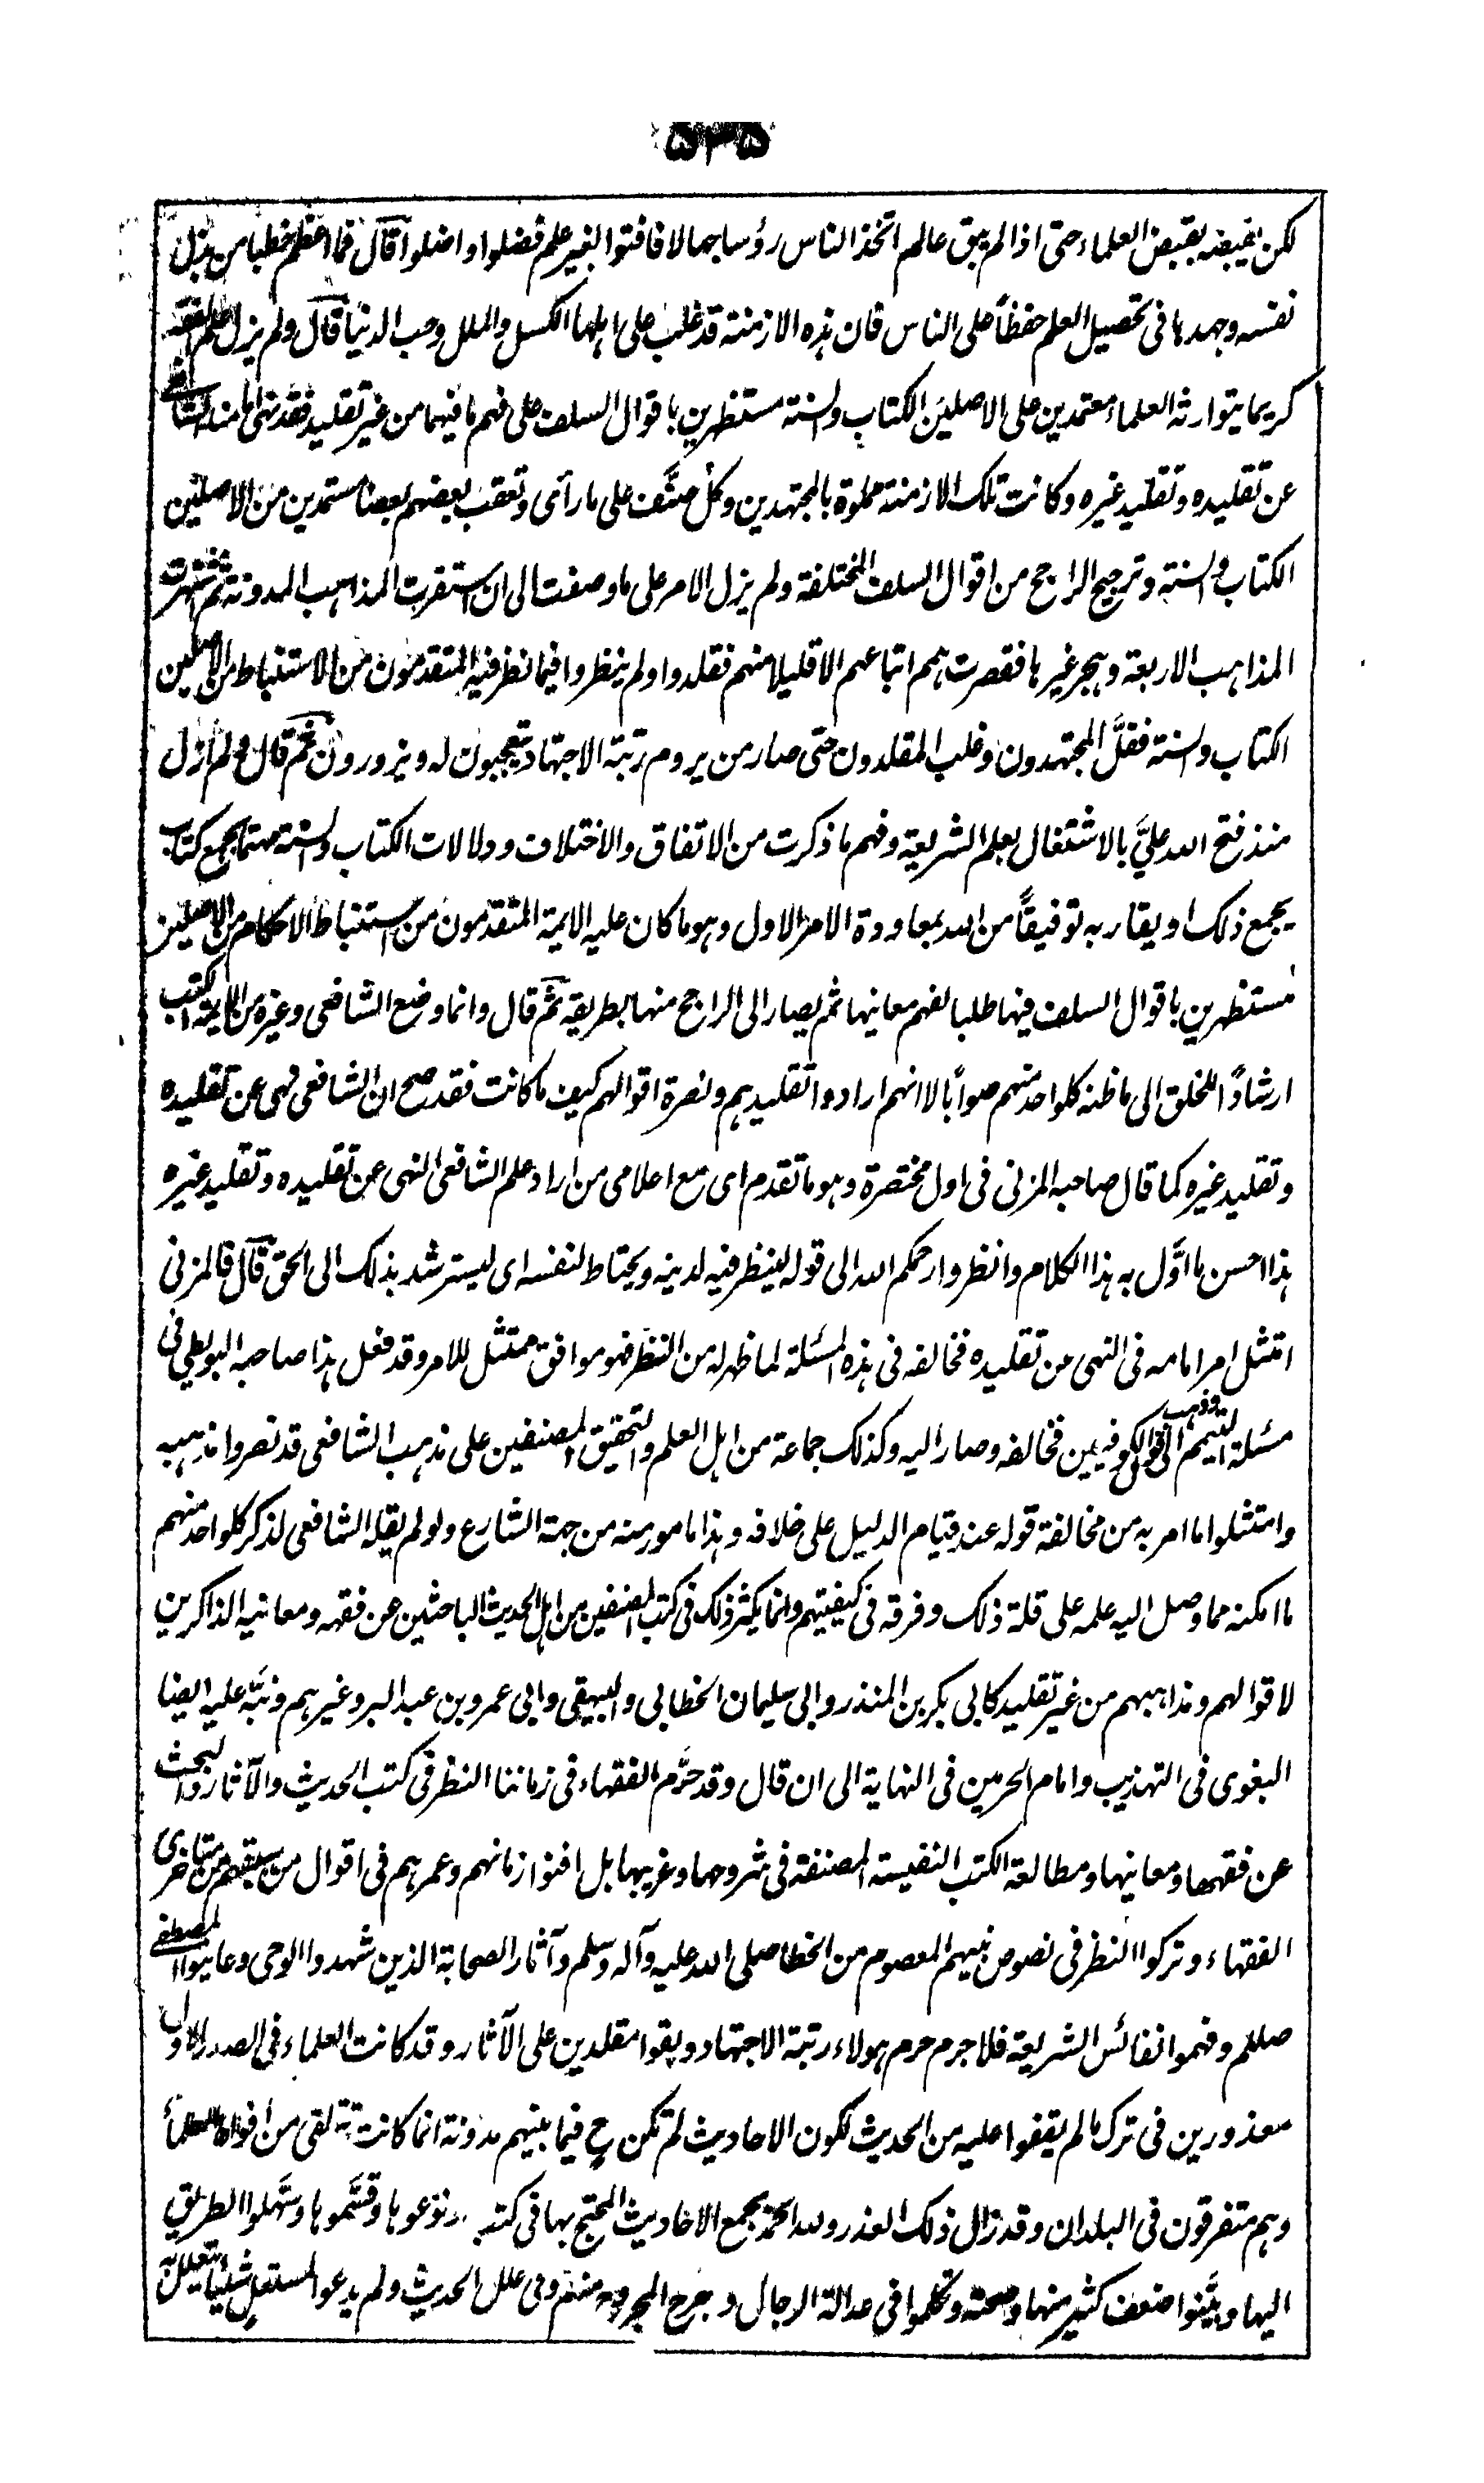 ٥٣٥
لكن يقبضه بقبض العلماء حتى اذا لم يبق عالم اتخذ الناس رؤسا جهالا فافتوا بغير علم فضلوا واضلوا قال فما اعظم خطبا من بذل
نفسه وجهدها فى تحصيل العلم حفظاً على الناس فان هذه الازمنة قد غلب على اهلها الكسل والملل وحب الدنيا قال ولم يزل علم الفقه
كريما يتوارثه العلماء معتمدين على الاصلين الكتاب والسنة مستظهرين باقوال السلف على فهم ما فيهما من غير تقليد فقد نهى امامنا الشافعي
عن تقليده وتقليد غيره وكانت تلك الازمنة مملوة بالمجتهدين وكل صنَّف على ما رآى وتعقب بعضهم بعضا مستمدين من الاصلين
الكتاب والسنة وترجيح الراجح من اقوال السلف المختلفة ولم يزل الامر على ما وصفت الى ان استقرت المذاهب المدونة ثم اشتهرت
المذاهب الاربعة وهجر غيرها فقصرت همم اتباعهم الا قليلا منهم فقلدوا ولم ينظروا فيما نظر فيه المتقدمون من الاستنباط من الاصلين
الكتاب والسنة فقلَّ المجتهدون وغلب المقلدون حتى صار من يروم رتبة الاجتهاد يتعجبون له ويزورون ثم قال ولم ازل
منذ فتح الله عليَّ بالاشتغال بعلم الشريعة وفهم ما ذكرت من الاتفاق والاختلاف ودلالات الكتاب والسنة مهتما بجمع كتاب
يجمع ذلك او يقاربه توفيقاً من الله بمعاودة الامر الاول وهو ما كان عليه الايمة المتقدمون من استنباط الاحكام من الاصلين
مستظهرين باقوال السلف فيها طلبا لفهم معانيها ثم يصار الى الراجح منها بطريقه ثم قال وانما وضع الشافعى وغيره من الايمة الكتب
ارشادًا للخلق الى ما ظنه كلواحد منهم صوابًا لا انهم ارادوا تقليدهم ونصرة اقوالهم كيف ما كانت فقد صح ان الشافعى نهى عن تقليده
وتقليد غيره كما قال صاحبه المزنى فى اول مختصرة وهو ما تقدم اى مع اعلامى من اراد علم الشافعى النهى عن تقليده وتقليد غيره
هذا احسن ما اوَّل به هذا الكلام وانظروا رحمكم الله الى قوله لينظر فيه لدينه ويحتاط لنفسه اى ليسترشد بذلك الى الحق قال فالمزنى
امتثل امر امامه فى النهى عن تقليده فخالفه فى هذه المسئلة لما ظهر له من النظر فهو موافق ممتثل للامر وقد فعل هذا صاحبه البويطي فى
مسئلة التيمم وذهب الى قول الكوفيين فخالفه وصار اليه وكذلك جماعة من اهل العلم والتحقيق المصنفين على مذهب الشافعى قد نصروا مذهبه
وامتثلوا ما امر به من مخالفة قوله عند قيام الدليل على خلافه وهذا مامور به من جهة الشارع ولو لم يقله الشافعى لذكر كلواحد منهم
ما امكنه مما وصل اليه علمه على قلة ذلك وفرقه فى كيفيتهم وانما يكثر ذلك فى كتب المصنفين من اهل الحديث الباحثين عن فقهه ومعانيه الذاكرين
لاقوالهم ومذاهبهم من غير تقليد كابى بكر بن المنذر وابى سليمان الخطابى والبيهقى وابى عمرو بن عبد البر وغيرهم ونبّه عليه ايضا
البغوى فى التهذيب وامام الحرمين فى النهاية الى ان قال وقد حرَّم الفقهاء فى زماننا النظر فى كتب الحديث والآثار والبحث
عن فقهها ومعانيها ومطالعة الكتب النفيسة المصنفة فى شروحها وغريبها بل افنوا زمانهم وعمرهم فى اقوال من سبقهم من متاخرى
الفقهاء وتركوا النظر فى نصوص نبيهم المعصوم من الخطا صلى الله عليه وآله وسلم وآثار الصحابة الذين شهدوا الوحى وعاينوا المصطفى
صللم وفهموا نفائس الشريعة فلا جرم حرم هولاء رتبة الاجتهاد وبقوا مقلدين على الآثار وقد كانت العلماء فى الصدر الاول
معذورين فى ترك ما لم يقفوا عليه من الحديث لكون الاحاديث لم تكن ح فيما بينهم مدونة انما كانت تتلقى من افواه العلماء
وهم متفرقون فى البلدان وقد زال ذلك العذر ولله الحمد بجمع الاحاديث المحتج بها فى كتب ونوعوها وقسَّموها وسهَّلوا الطريق
اليها وبيَّنوا ضعف كثير منها وصحته وتكلموا فى عدالة الرجال وجرح المجروح منهم وفى علل الحديث ولم يدعوا لمشتغل شيئا يتعلل به